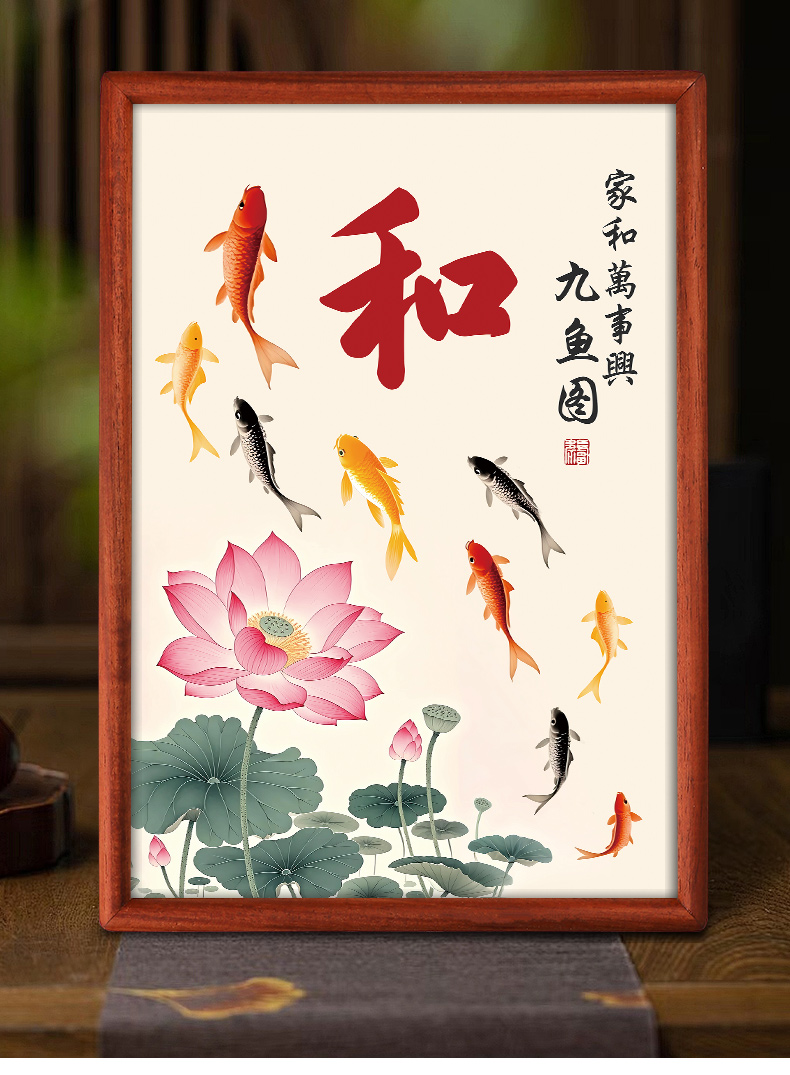 和
家和萬事興
九鱼图